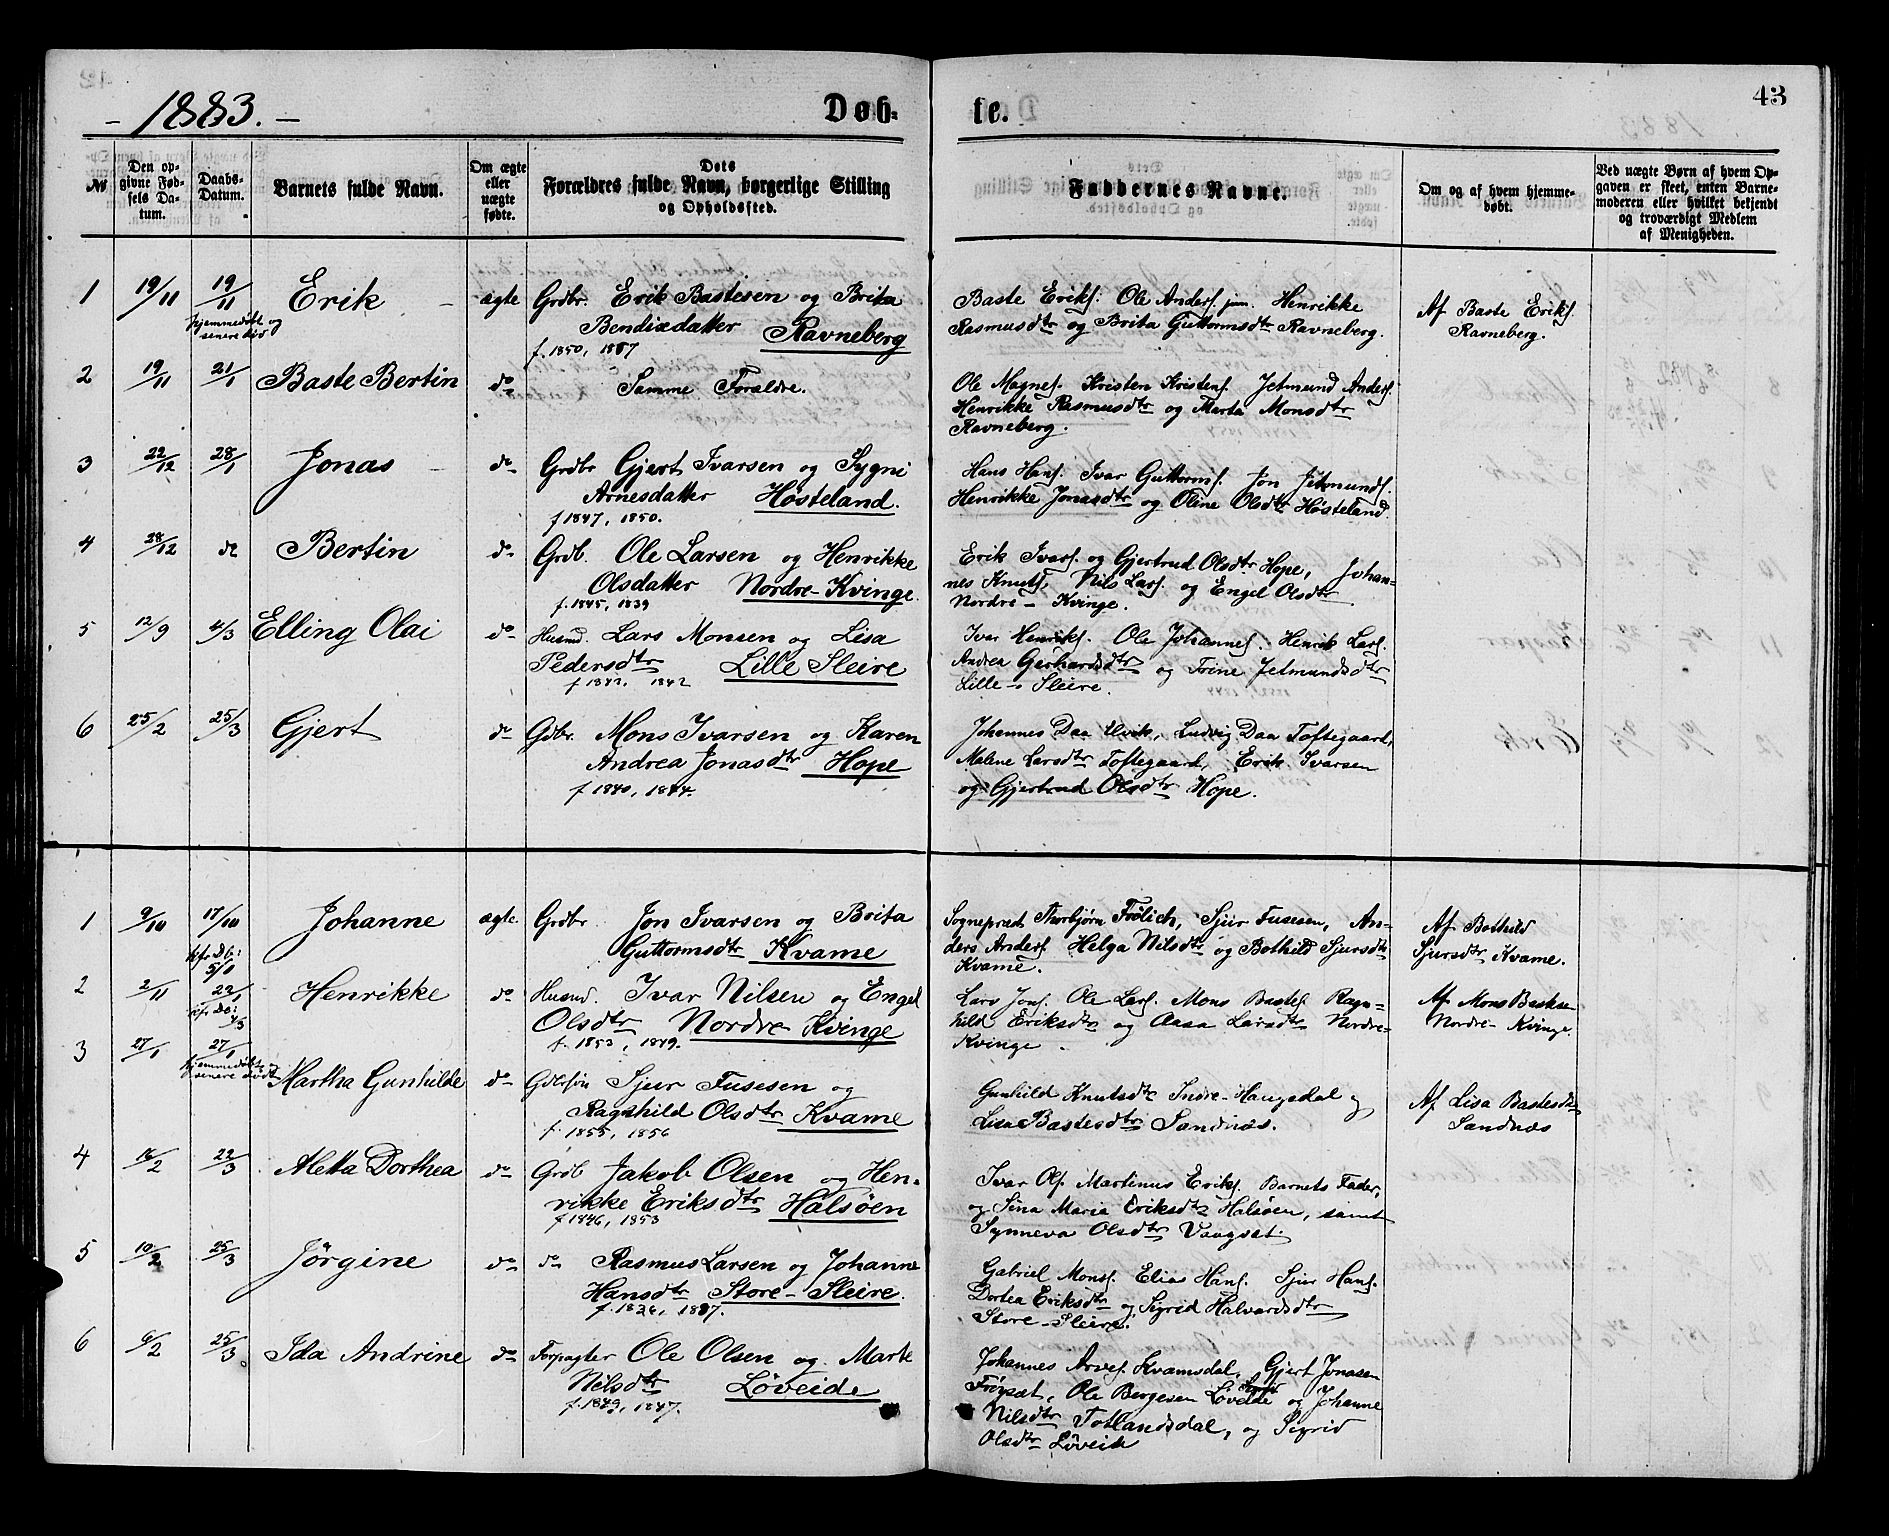 - 1883. -
Døb-
te.
43
№
Den op-
givne Fød-
sels Da-
tum.
Daabs-
Datum.
Barnets fulde Navn.
Om ægte
eller
uægte
fødte.
Dets
Forældres fulde Navn, borgerlige Stilling
og Opholdssted.
Faddernes Navne.
Om og af hvem hjemme-
døbt.
Ved uægte Børn af hvem Op-
gaven er skeet, enten Barne-
moderen eller hvilket bekjendt
og troværdigt Medlem
af Menigheden.
1 19/11 19/11 Erik - ægte Grdbr. Erik Bastesen og Brita
hjemmedøbt og
senere død
Bendixdatter Ravneberg
f. 1850, 1857
Baste Eriks. Ole Anders. jun. Henrikke
Rasmusdtr og Brita Guttormsdtr Ravneberg.
Af Baste Eriks.
Ravneberg.
2 19/11 21/1 Baste Bertin do Samme Forældre.
Ole Magnes. Kristen Kristens. Jetmund Anders.
Henrikke Rasmusdtr og Marta Monsdtr
Ravneberg.
3 22/12 28/1 Jonas - do Grdbr Gjert Ivarsen og Sygni
Arnesdatter Høsteland.
f 1847, 1850.
Hans Hans. Ivar Guttorms. Jon Jetmunds.
Henrikke Jonasdtr og Oline Olsdtr Høsteland.
4 28/12 do Bertin do Grdb. Ole Larsen og Henrikke
Olsdatter Nordre-Kvinge.
f. 1845, 1839
Erik Ivars. og Gjertrud Olsdtr Hope, Johan-
nes Knuts, Nils Lars. og Engel Olsdtr
Nordre - Kvinge.
5 12/9 4/3 Elling Olai do Husmd. Lars Monsen og Lisa
Pedersdtr Lille Sleire
f 1842, 1842
Ivar Henriks. Ole Johannes. Henrik Lars.
Andrea Gerhardsdtr og Trine Jetmundsdtr
Lille - Sleire.
6 25/2 25/3 Gjert do Gdbr. Mons Ivarsen og Karen
Andrea Jonasdtr Hope
f 1840, 1844.
Johannes Daa Ulvik, Ludvig Daa Toftegaard,
Malene Larsdtr Toftegaard, Erik Ivarsen
og Gjertrud Olsdtr Hope.
1 9/10 17/10 Johanne ægte. Grdbr. Jon Ivarsen og Brita
Kfr Db:
5/0
Guttormsdtr Kvame
Sognepræst Thorbjørn Frølich, Sjur Fusesen, An-
ders Anders. Helga Nilsdtr og Bothild Sjursdtr
Kvame.
Af Bothild
Sjursdtr Kvame.
2 2/11 22/1 Henrikke do Husmd. Ivar Nilsen og Engel
Kfr Db:
4/3
Olsdtr Nordre Kvinge
f. 1853, 1849.
Lars Jons. Ole Lars. Mons Bastes. Ragn-
hild Eriksdtr og Aasa Larsdtr Nordre-
Kvinge.
Af Mons Bastesen
Nordre- Kvinge.
3 27/1 27/1
hjemmedøbt og
senere død
Martha Gunhilde do Gdbrsøn Sjur Fusesen og
Ragnhild Olsdtr Kvame
f. 1855, 1856
Gunhild Knutsdtr Indre-Haugsdal og
Lisa Bastesdtr Sandnæs.
Af Lisa Bastesdtr
Sandnæs
4 16/2 22/3 Aletta Dorthea do Grdb Jakob Olsen og Hen-
rikke Eriksdtr Halsøen
f 1846, 1853
Ivar Ols. Martinus Eriks. Barnets Fader,
og Sina Maria Eriksdtr Halsøen, samt
Synneva Olsdtr Vangsæt
5 10/2 25/3 Jørgine do do Rasmus Larsen og Johanne
Hansdtr Store-Sleire.
f. 1836, 1837.
Gabriel Mons. Elias Hans. Sjur Hans.
Dortea Eriksdtr og Sigrid Halvardsdtr
Store - Sleire.
6 6/2 25/3 Ida Andrine do Forpagter Ole Olsen og Marte
Nilsdtr Løveide
f. 1849, 1847.
Johannes Arves. Kvamsdal, Gjert Jonasen
Frøyset, Ole Børgesen Løveide og Johanne
Nilsdtr Totlandsdal, og Sigrid
Olsdtr Løveik